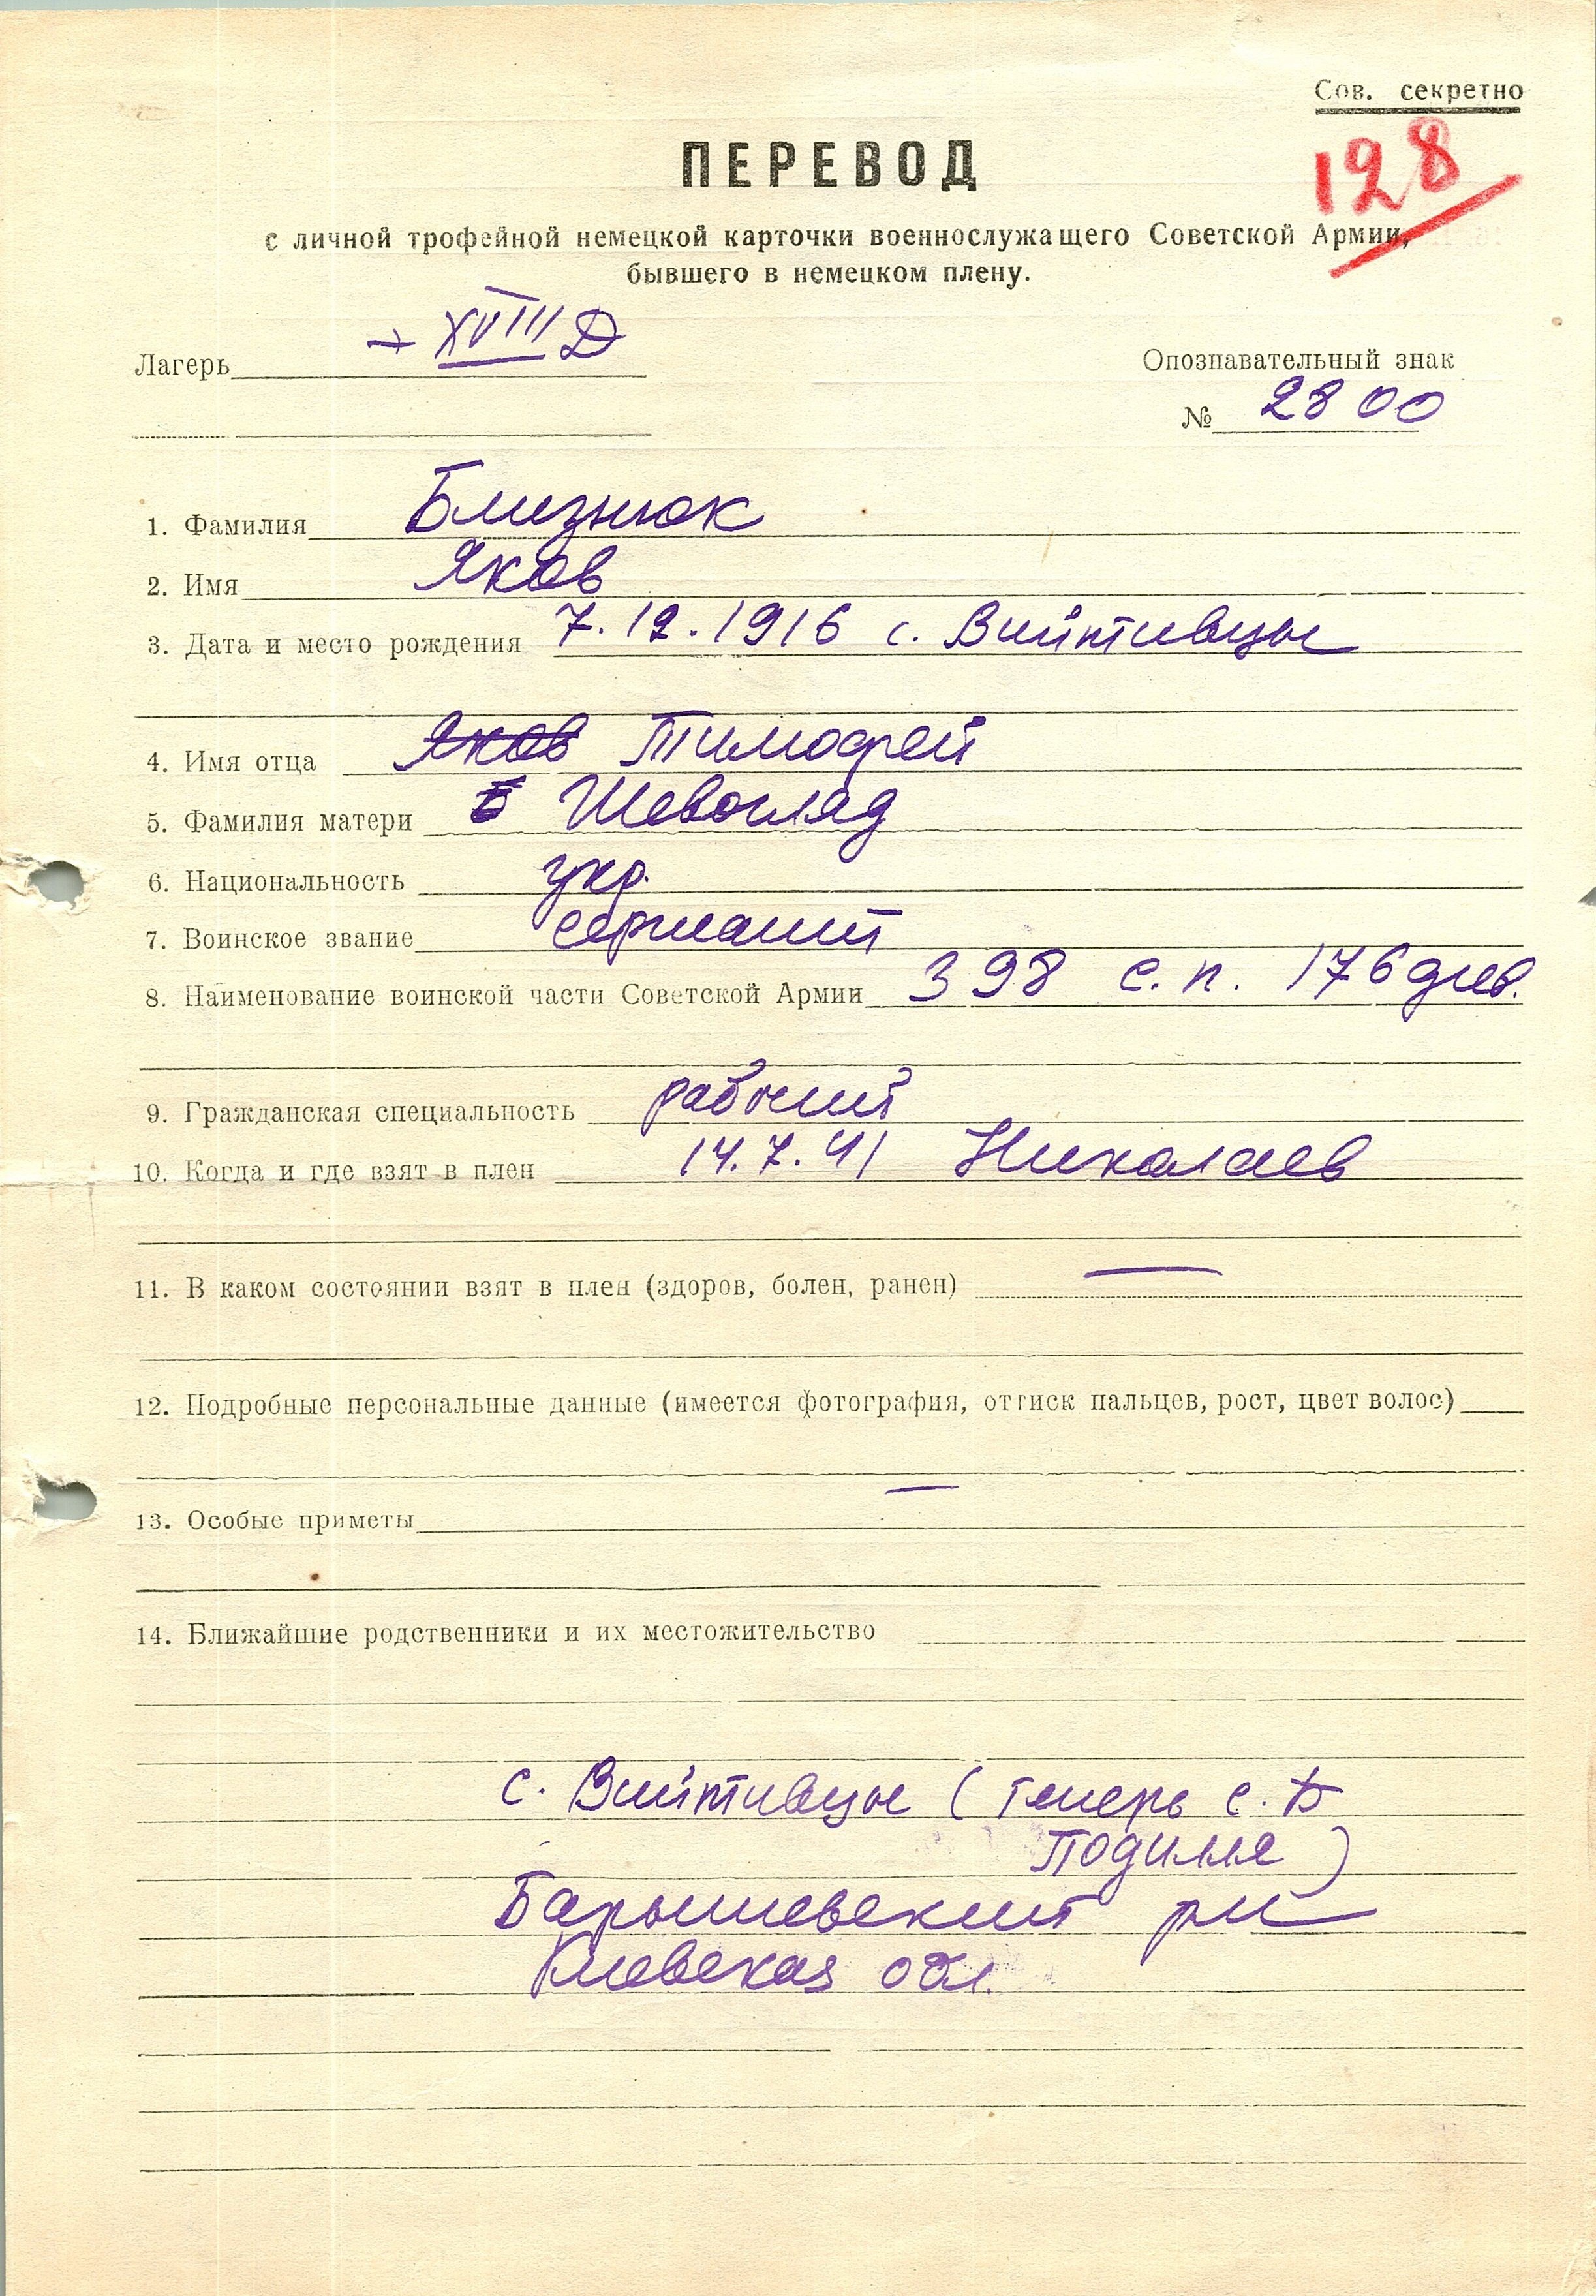 Сов. секретно
128
ПЕРЕВОД
с личной трофейной немецкой карточки военнослужащего Советской Армии,
бывшего в немецком плену.
Лагерь XVIII Д
Опознавательный знак
№ 2800
1. Фамилия Близнюк
2. Имя Яков
3. Дата и место рождения 7.12.1916 с. Вийтивцы
4. Имя отца Яков Тимофей
5. Фамилия матери Шевогляд
6. Национальность укр.
7. Воинское звание сержант
8. Наименование воинской части Советской Армии 398 с.п. 176 див.
9. Гражданская специальность рабочий
10. Когда и где взят в плен 14.7.41 Николаев
11. В каком состоянии взят в плен (здоров, болен, ранен) —
12. Подробные персональные данные (имеется фотография, оттиск пальцев, рост, цвет волос)
—
13. Особые приметы
14. Ближайшие родственники и их местожительство
с. Вийтивцы (теперь с.
Подилля)
Барышевский рн
Киевская обл.